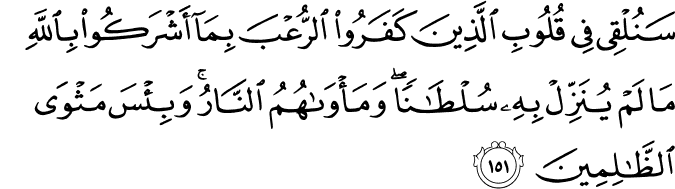 سَنُلْقِى فِى قُلُوبِ ٱلَّذِينَ كَفَرُوا۟ ٱلرُّعْبَ بِمَآ أَشْرَكُوا۟ بِٱللَّهِ
مَا لَمْ يُنَزِّلْ بِهِۦ سُلْطَـٰنًا ۖ وَمَأْوَىٰهُمُ ٱلنَّارُ ۚ وَبِئْسَ مَثْوَى
ٱلظَّـٰلِمِينَ ١٥١